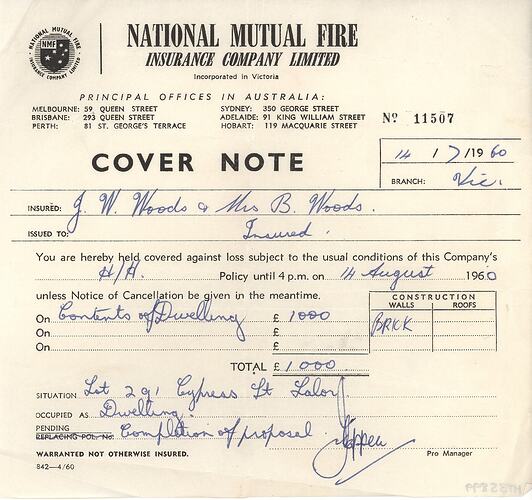 NATIONAL MUTUAL FIRE
INSURANCE COMPANY LIMITED
NMF
NATIONAL MUTUAL FIRE
INSURANCE COMPANY LIMITED
Incorporated in Victoria
PRINCIPAL OFFICES IN AUSTRALIA:
MELBOURNE: 59 QUEEN STREET SYDNEY: 350 GEORGE STREET
BRISBANE: 293 QUEEN STREET ADELAIDE: 91 KING WILLIAM STREET
PERTH: 81 ST. GEORGE'S TERRACE HOBART: 119 MACQUARIE STREET
Nº 11507
COVER NOTE
14 / 7 /1960
BRANCH: Vic.
INSURED: J. W. Woods & Mrs B. Woods.
ISSUED TO: Insured.
You are hereby held covered against loss subject to the usual conditions of this Company's
H/H. Policy until 4 p.m. on 14 August 1960
unless Notice of Cancellation be given in the meantime.
CONSTRUCTION
WALLS ROOFS
On Contents of Dwelling £ 1000
BRICK
On £
On £
TOTAL £ 1000.
SITUATION Lot 291 Cypress St Lalor
OCCUPIED AS Dwelling.
PENDING Completion of proposal.
REPLACING POL. No.
WARRANTED NOT OTHERWISE INSURED.
Pro Manager
842—4/60